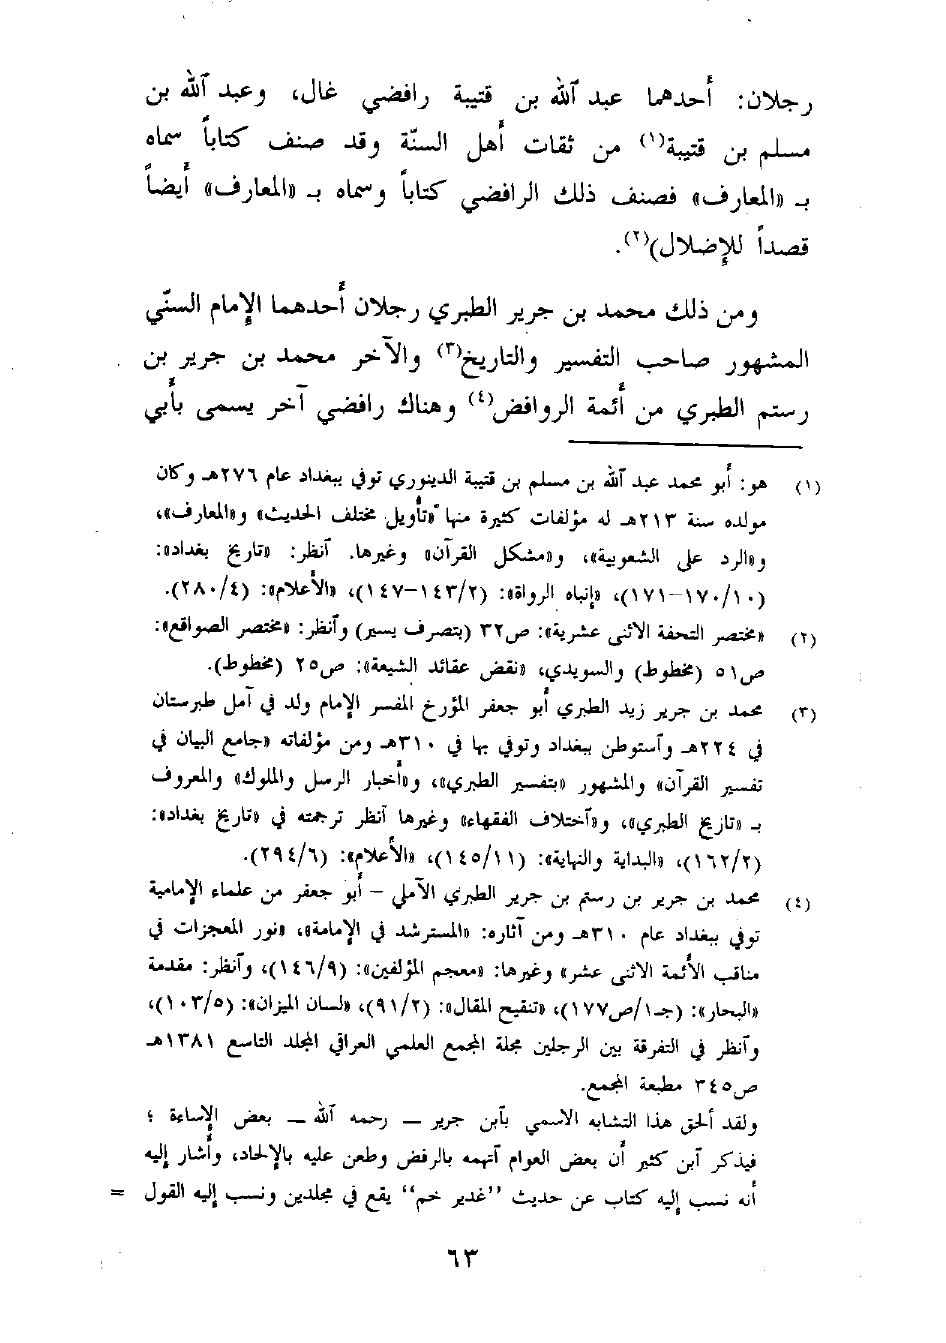 رجلان: أحدهما عبد ٱلله بن قتيبة رافضي غال، وعبد ٱلله بن
مسلم بن قتيبة(١) من ثقات أهل السنّة وقد صنف كتاباً سماه
بـ «المعارف» فصنف ذلك الرافضي كتاباً وسماه بـ «المعارف» أيضاً
قصداً للإضلال)(٢).
ومن ذلك محمد بن جرير الطبري رجلان أحدهما الإمام السنّي
المشهور صاحب التفسير والتاريخ(٣) والآخر محمد بن جرير بن
رستم الطبري من أئمة الروافض(٤) وهناك رافضي آخر يسمى بأبي
(١) هو: أبو محمد عبد ٱلله بن مسلم بن قتيبة الدينوري توفي ببغداد عام ٢٧٦هـ وكان
مولده سنة ٢١٣هـ له مؤلفات كثيرة منها «تأويل مختلف الحديث» و«المعارف»،
و«الرد على الشعوبية»، و«مشكل القرآن» وغيرها. ٱنظر: «تاريخ بغداد»:
(١٧٠/١٠-١٧١)، «إنباه الرواة»: (١٤٣/٢-١٤٧)، «الأعلام»: (٢٨٠/٤).
(٢) «مختصر التحفة الاثنى عشرية»: ص٣٢ (بتصرف يسير) وٱنظر: «مختصر الصواقع»:
ص٥١ (مخطوط) والسويدي، «نقض عقائد الشيعة»: ص٢٥ (مخطوط).
(٣) محمد بن جرير زيد الطبري أبو جعفر المؤرخ المفسر الإمام ولد في آمل طبرستان
في ٢٢٤هـ وٱستوطن ببغداد وتوفي بها في ٣١٠هـ ومن مؤلفاته «جامع البيان في
تفسير القرآن» والمشهور «بتفسير الطبري»، و«أخبار الرسل والملوك» والمعروف
بـ «تاريخ الطبري»، و«ٱختلاف الفقهاء» وغيرها ٱنظر ترجمته في «تاريخ بغداد»:
(١٦٢/٢)، «البداية والنهاية»: (١٤٥/١١)، «الأعلام»: (٢٩٤/٦).
(٤) محمد بن جرير بن رستم بن جرير الطبري الآملي – أبو جعفر من علماء الإمامية
توفي ببغداد عام ٣١٠هـ ومن آثاره: «المسترشد في الإمامة»، «نور المعجزات في
مناقب الأئمة الاثنى عشر» وغيرها: «معجم المؤلفين»: (١٤٦/٩)، وٱنظر: مقدمة
«البحار»: (جـ١/ص١٧٧)، «تنقيح المقال»: (٩١/٢)، «لسان الميزان»: (١٠٣/٥)،
وٱنظر في التفرقة بين الرجلين مجلة المجمع العلمي العراقي المجلد التاسع ١٣٨١هـ
ص٣٤٥ مطبعة المجمع.
ولقد ألحق هذا التشابه الاسمي بٱبن جرير – رحمه ٱلله – بعض الإساءة ؛
فيذكر ٱبن كثير أن بعض العوام ٱتهمه بالرفض وطعن عليه بالإلحاد، وأشار إليه
أنه نسب إليه كتاب عن حديث ”غدير خم“ يقع في مجلدين ونسب إليه القول =
٦٣